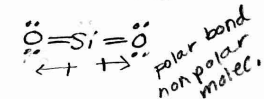 O=Si=O
polar bond
nonpolar
molec.